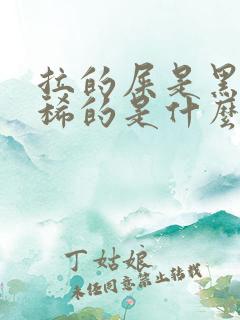 拉的屎是黑
稀的是什么
丁姑娘
未经同意禁止转载